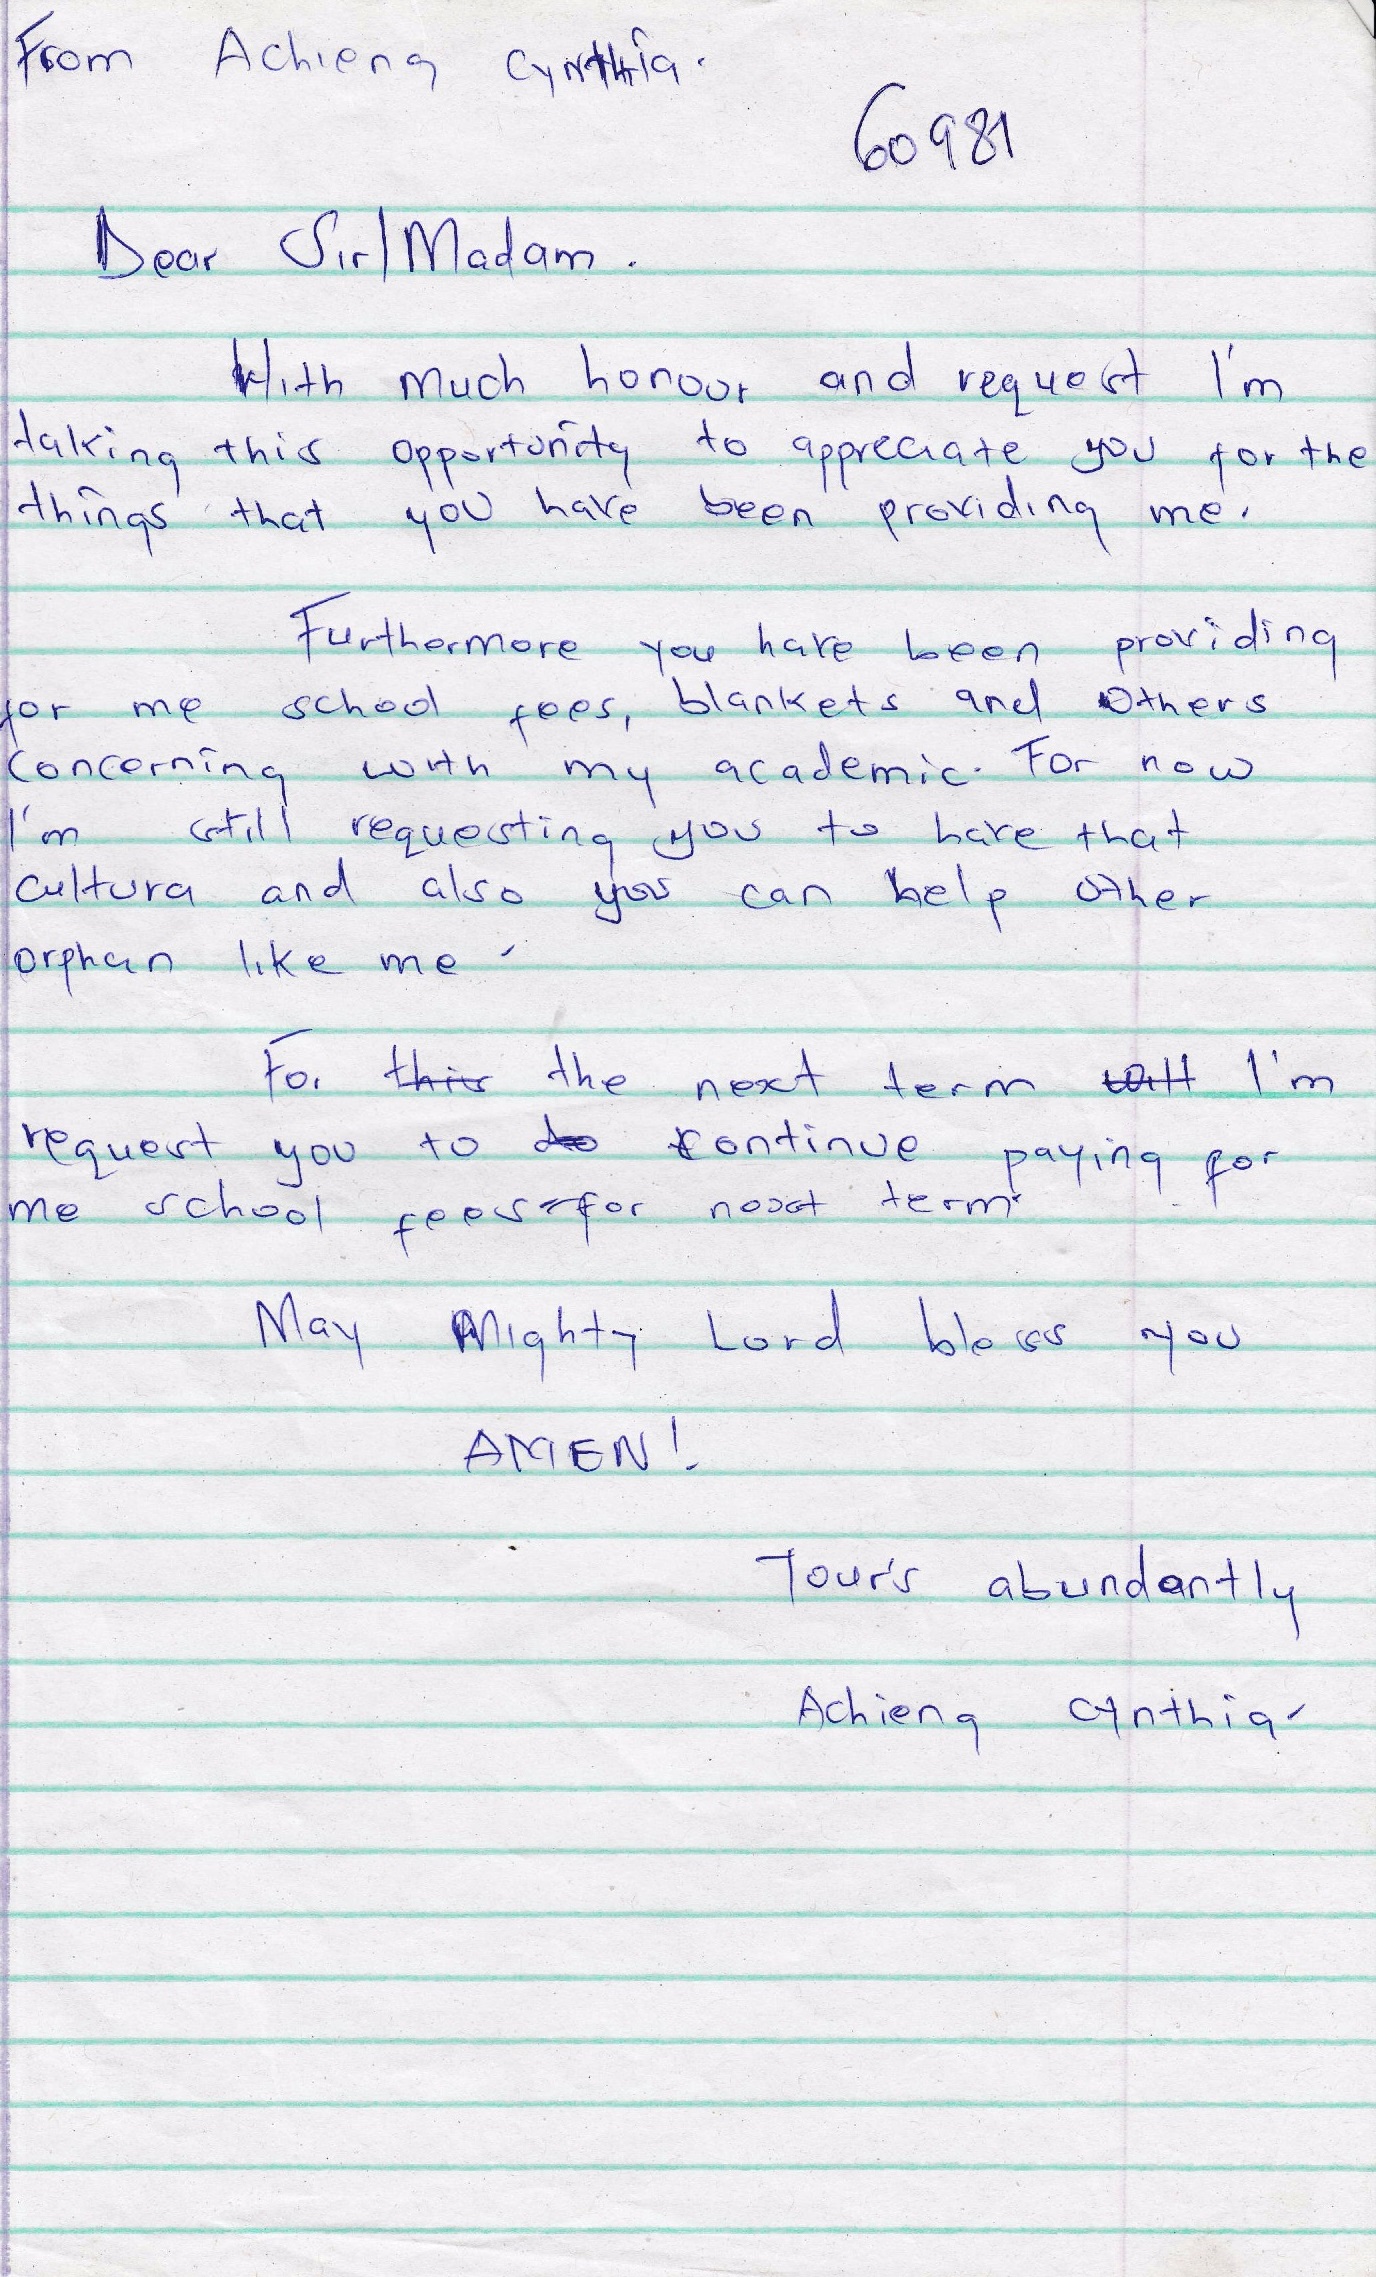 From Achieng Cynthia.
60981
Dear Sir/Madam.
With much honour and request I'm
taking this opportunity to appreciate you for the
things that you have been providing me.
Furthermore you have been providing
for me school fees, blankets and others
Concerning with my academic. For now
I'm still requesting you to have that
cultura and also you can help other
orphan like me.
For this the next term will I'm
request you to do continue paying for
me school fees for next term.
May Mighty Lord bless you
AMEN!
Your's abundantly
Achieng Cynthia.